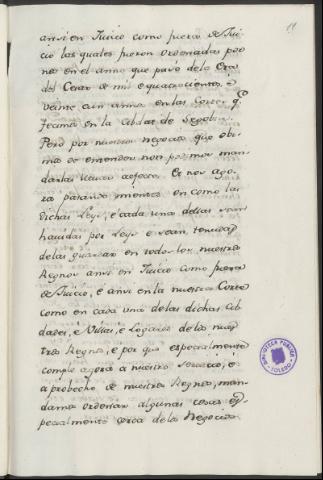 11
ansi en Juicio como fuera de Jui-
cio las quales fueron ordenadas por
nos en el anno que pasó dela Era
del Cesar de mil e quatrocientos, é
veinte cin annos en las Cortes q.
fecimos en la cibdat de Segobia.
Pero por nuestros negocios que obi-
mos de entender non podimos man-
darlas facer Et nos ago-
ra parando mientes en como las
dichas Leys, é cada una dellas sean
havidas por Leys e sean tenudas
de las guardar en todos los nuestros
Regnos ansi en Juicio como fuera
de Juicio, é ansi en la nuestra Corte
como en cada una delas dichas cib-
dades, é Villas, é Logares de los nues-
tros Regnos, e por que especialmente
comple agora á nuestro servicio, é
a probecho de nuestros Regnos, man-
damos ordenar algunas cosas es-
pecialmente cerca delos Negocios
BIBLIOTECA PUBLICA
TOLEDO